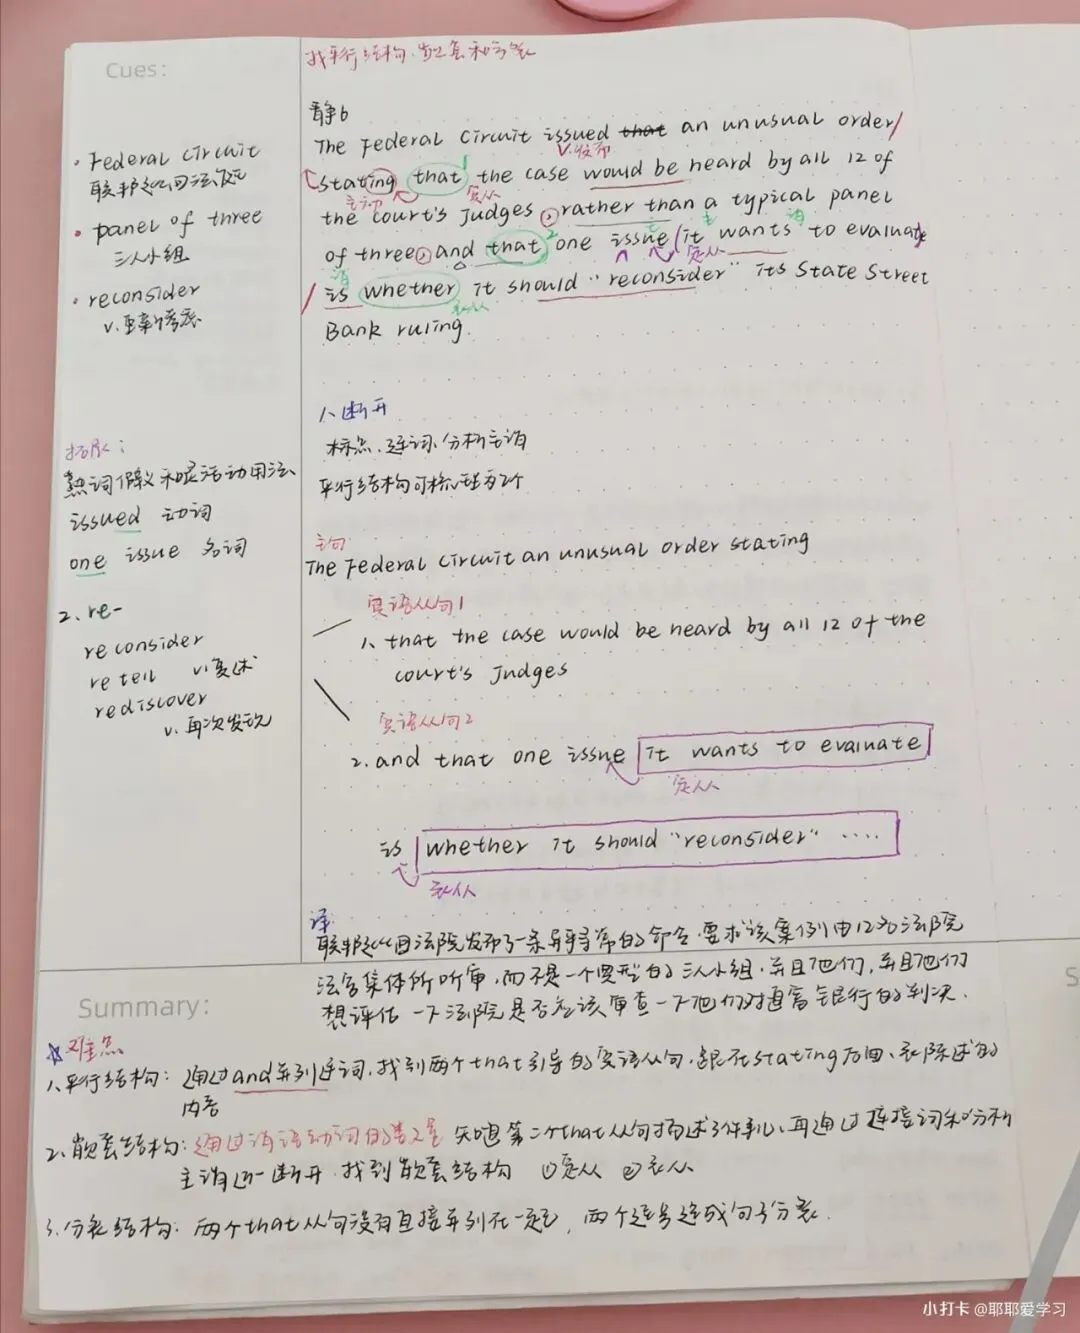 Cues:
找平行结构、嵌套和分裂
· Federal Circuit
联邦巡回法院
· panel of three
三人小组
· reconsider
v. 重新考虑
拓展:
熟词僻义和灵活动用法
issued 动词
one issue 名词
2. re-
reconsider
retell v.复述
rediscover
v. 再次发现
静6
The Federal Circuit issued that an unusual order/
v.发布
stating that the case would be heard by all 12 of
宾从
the court's Judges , rather than a typical panel
of three, and that one issue it wants to evaluate
定从
is whether it should "reconsider" its State Street
表从
Bank ruling.
1、断开
标点、连词、分析主谓
平行结构可梳理为2个
主句
The Federal Circuit an unusual order stating
宾语从句1
1、that the case would be heard by all 12 of the
court's Judges
宾语从句2
2. and that one issue it wants to evaluate
定从
is whether it should "reconsider" .....
表从
译
联邦巡回法院发布了一条异寻常的命令,要求该案例由12名法院
法官集体所听审,而不是一个典型的三人小组,并且他们,并且他们
想评估一下法院是否应该审查一下他们对道富银行的判决.
Summary:
☆难点
1、平行结构: 通过and并列连词,找到两个that引导的宾语从句,跟在stating后面、表陈述的
内容
2、嵌套结构:通过谓语动词的数量 知道第二个that从句描述了件事儿,再通过连接词和分析
主谓 断开,找到嵌套结构 ①定从 ②表从
3、分裂结构: 两个that从句没有直接并列在一起, 两个逗号造成句子分裂.
小打卡 @耶耶爱学习